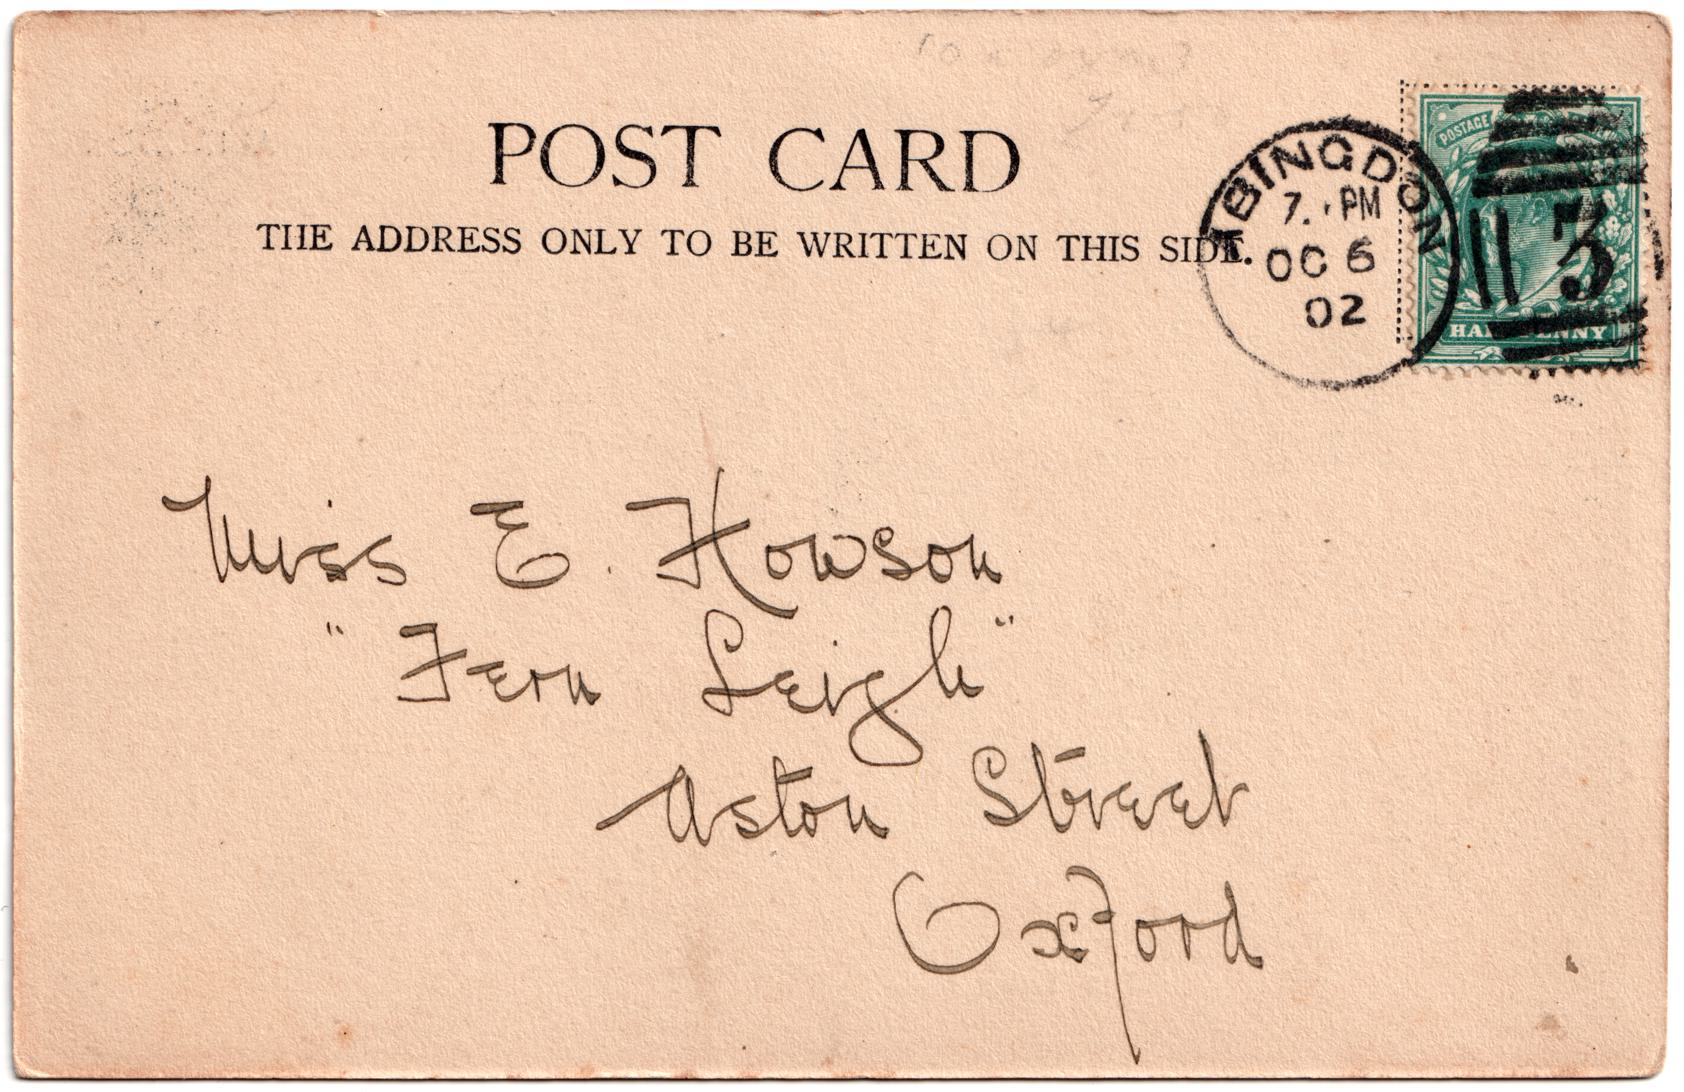 POST CARD
THE ADDRESS ONLY TO BE WRITTEN ON THIS SIDE.
ABINGDON
7. PM
OC 6
02
POSTAGE
HALFPENNY
113
Miss E. Howson
"Fern Leigh"
Aston Street
Oxford